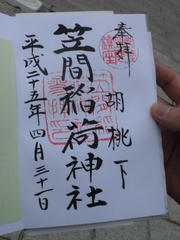 奉拝
胡桃下
笠間稲荷神社
平成二十五年四月三十日